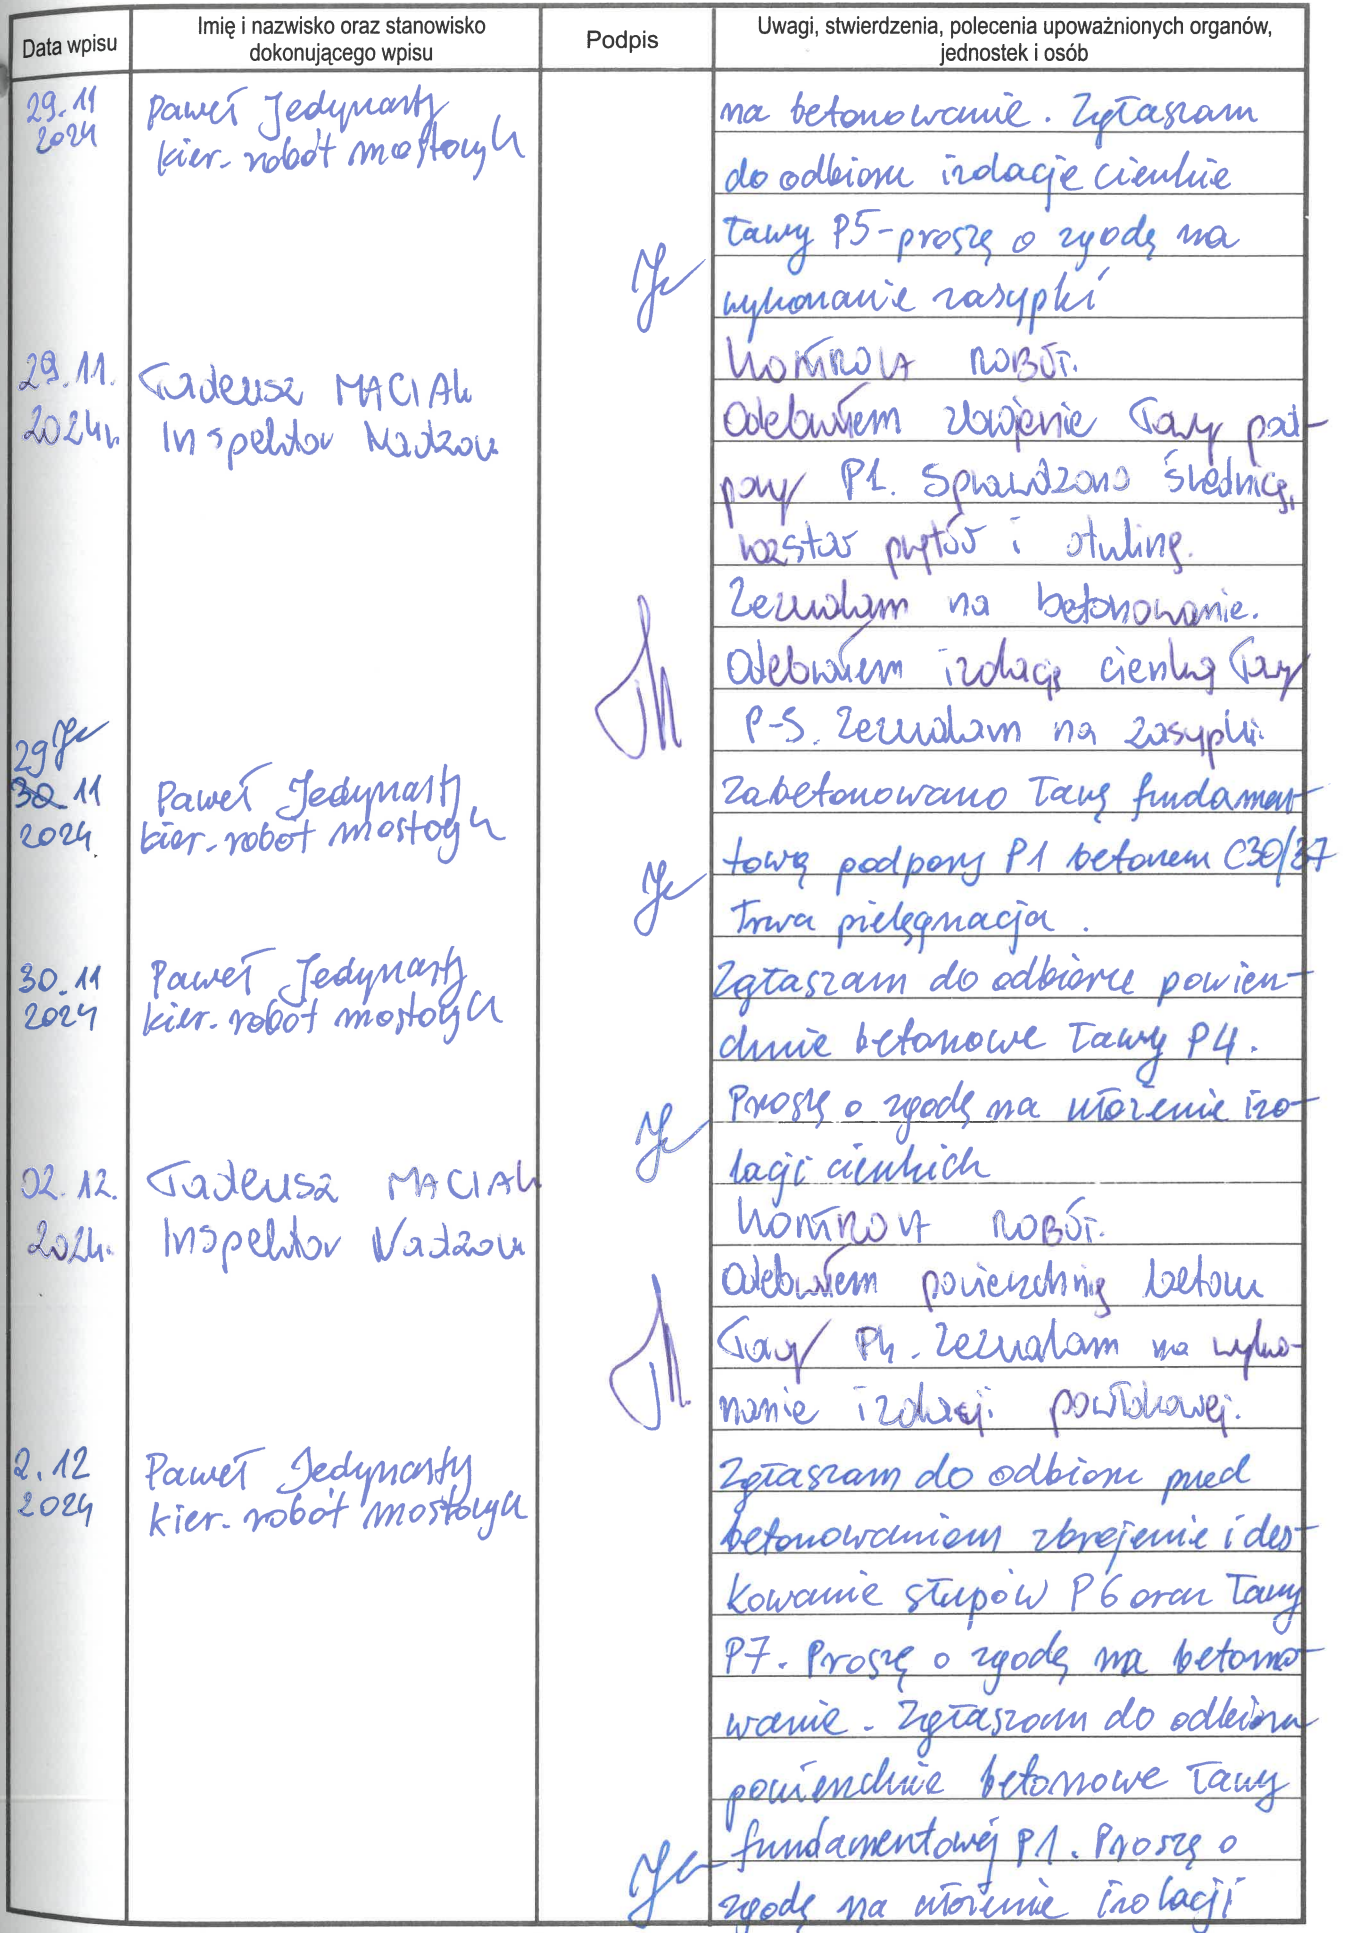 Data wpisu
Imię i nazwisko oraz stanowisko
dokonującego wpisu
Podpis
Uwagi, stwierdzenia, polecenia upoważnionych organów,
jednostek i osób
29.11
2024
Paweł Jedynasty
kier. robót mostowych
na betonowanie. Zgłaszam
do odbioru izolacje cienkie
ławy P5 - proszę o zgodę na
wykonanie zasypki
29.11.
2024r.
Tadeusz MACIAK
Inspektor Nadzoru
KONTROLA ROBÓT.
Odebrałem zbrojenie ławy pod-
pory P1. Sprawdzono średnicę,
rozstaw prętów i otulinę.
Zezwalam na betonowanie.
Odebrałem izolację cienką ławy
P-5. Zezwalam na zasypki.
29
30.11
2024.
Paweł Jedynasty
kier. robót mostowych
Zabetonowano ławę fundamen-
tową podpory P1 betonem C30/37
Trwa pielęgnacja.
30.11
2024
Paweł Jedynasty
kier. robót mostowych
Zgłaszam do odbioru powierz-
chnie betonowe ławy P4.
Proszę o zgodę na ułożenie izo-
lacji cienkich
02.12.
2024r.
Tadeusz MACIAK
Inspektor Nadzoru
KONTROLA ROBÓT.
Odebrałem powierzchnię betonu
ławy P4. Zezwalam na wyko-
nanie izolacji powłokowej.
2.12
2024
Paweł Jedynasty
kier. robót mostowych
Zgłaszam do odbioru przed
betonowaniem zbrojenie i des-
kowanie słupów P6 oraz ławy
P7. Proszę o zgodę na betono-
wanie. Zgłaszam do odbioru
powierzchnie betonowe ławy
fundamentowej P1. Proszę o
zgodę na ułożenie izolacji